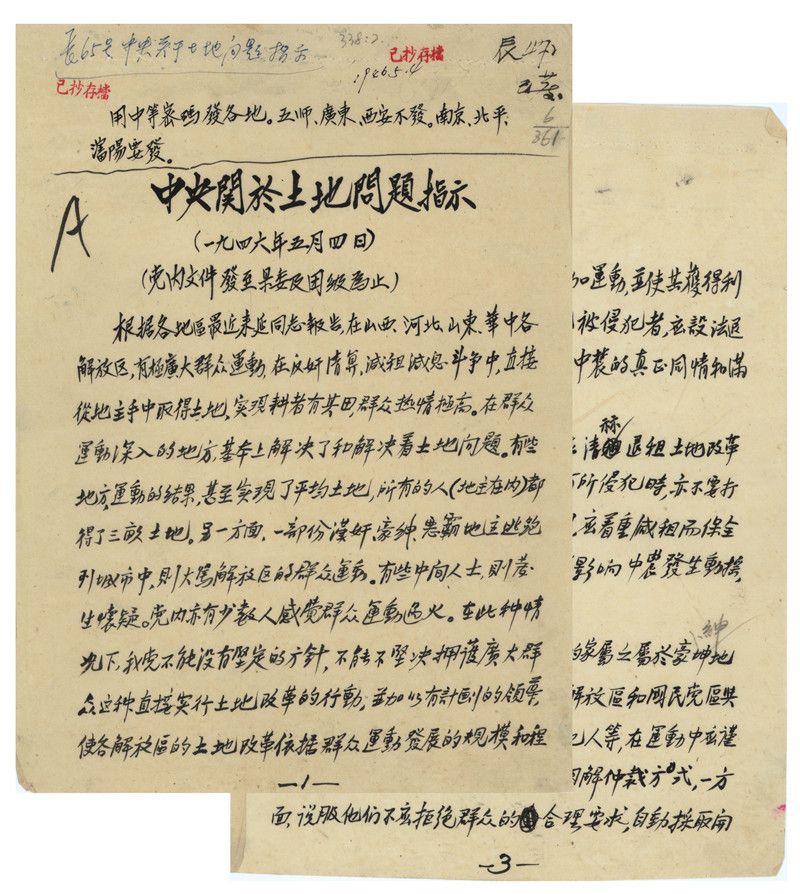 長65号 中央关于土地问题指示
338:2
已抄存檔
1946.5.4
已抄存檔
6
361
用中等密碼發各地。五师、廣東、西安不發。南京、北平、
瀋陽要發。
A
中央関於土地問題指示
(一九四六年五月四日)
(党内文件發至県委及团級為止)
根据各地區最近来延同志報告,在山西、河北、山東、華中各
解放区,有極廣大群众運動,在反奸清算,減租減息斗争中,直接
從地主手中取得土地,实現耕者有其田群众热情極高。在群众
運動深入的地方,基本上解决了和解决着土地问題。有些
地方,運動的結果,甚至实現了平均土地,所有的人(地主在内)都
得了三畝土地。另一方面,一部份漢奸、豪紳、悪霸地主逃跑
到城市中,則大罵解放区的群众運動。有些中間人士,則發
生懷疑。党内亦有少数人感覺群众運動过火。在此种情
况下,我党不能没有堅定的方针,不能不堅决拥護廣大群
众这种直接实行土地改革的行動,並加以有計劃的領導,
使各解放区的土地改革依据群众運動發展的規模和程
—1—
加運動,並使其獲得利
被侵犯者,应設法退
中農的真正同情和滿
清算退租土地改革
所侵犯時,亦不要打
应着重減租而保全
影响中農發生動搖,
紳
的家屬之屬於豪坤地
解放區和國民党區與
犯人等,在運動中应謹
解仲裁方式,一方
面,说服他们不应拒绝群众的合理要求,自動採取開
—3—